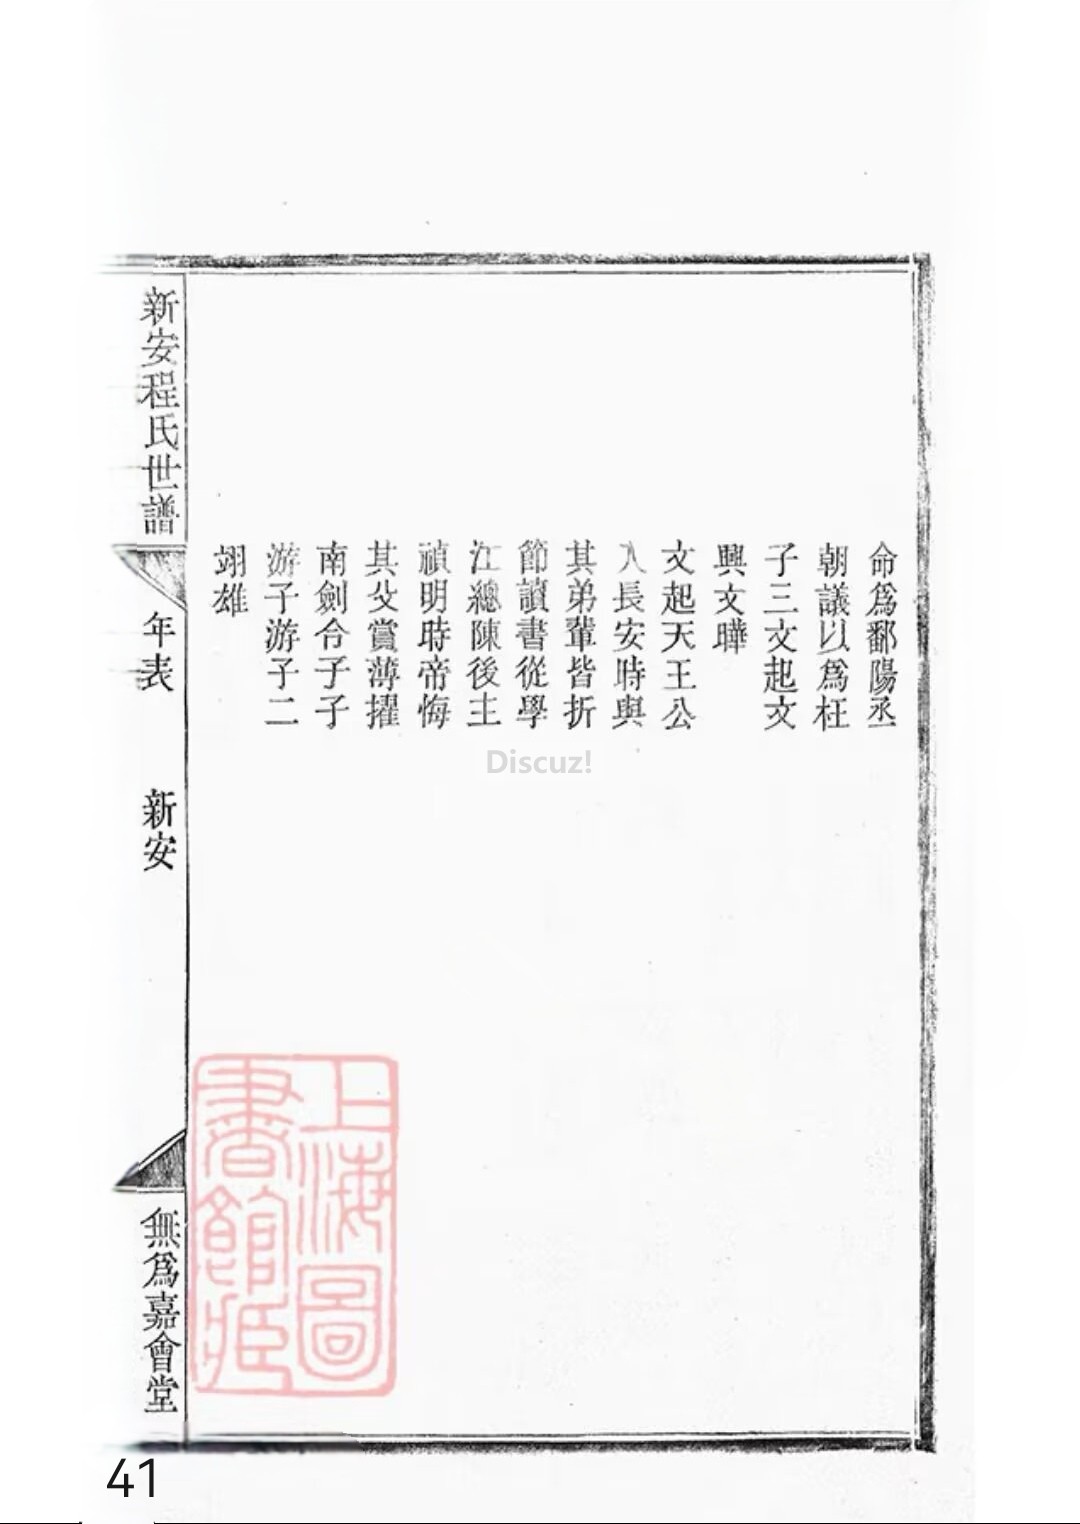 命爲鄱陽丞
朝議以爲枉
子三文起文
興文曄
文起天王公
入長安時與
其弟輩皆折
節讀書從學
江總陳後主
禎明時帝悔
其父賞薄擢
南劍令子子
游子游子二
翊雄
新安程氏世譜
年表
新安
無爲嘉會堂
上海圖
書館藏
Discuz!
41